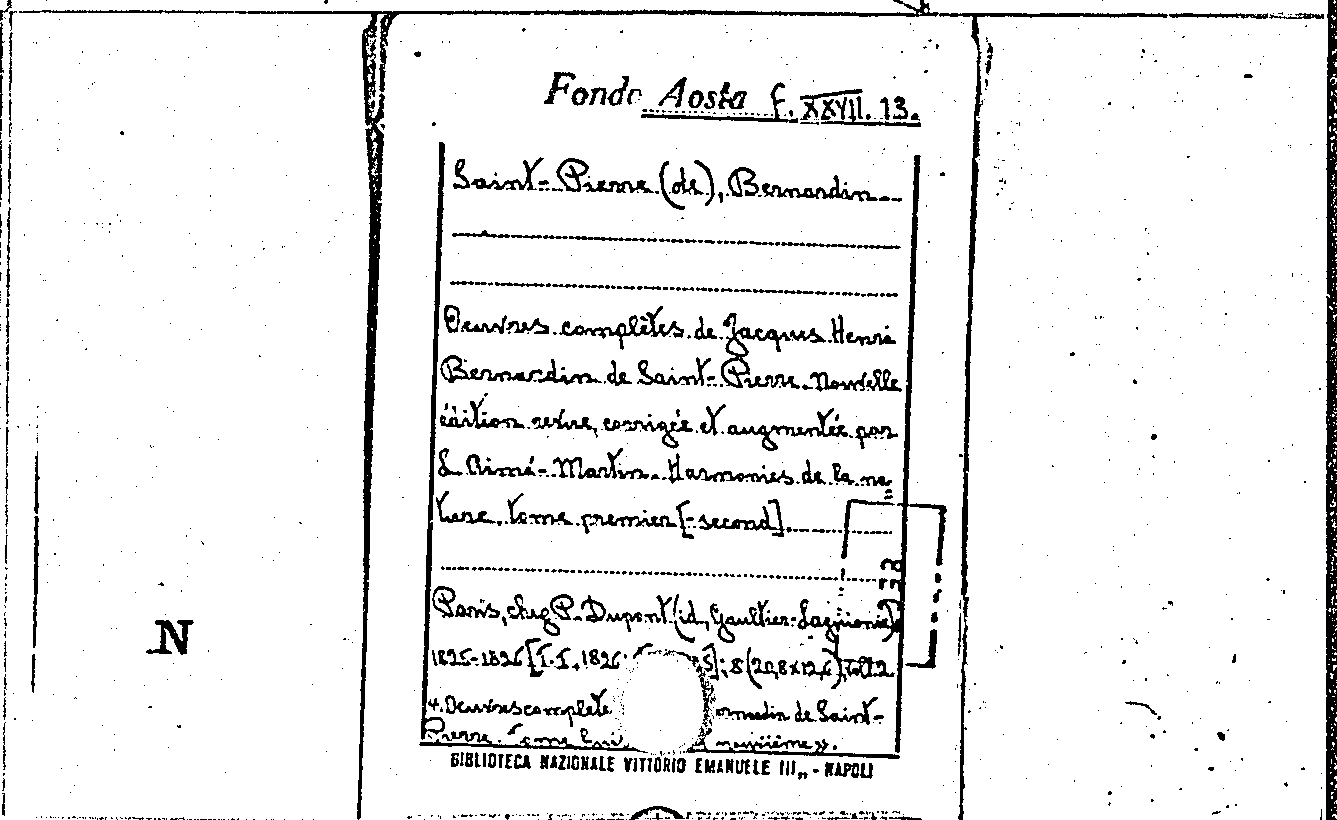 Fondo Aosta f. XXVII. 13.
Saint-Pierre (de), Bernardin
Oeuvres complètes de Jacques Henri
Bernardin de Saint-Pierre. Nouvelle
édition revue, corrigée et augmentée par
L. Aimé-Martin. Harmonies de la na=
ture. tome premier [-second].
Paris, chez P. Dupont (id, Gaultier-Laguionie)
1825-1826 ; 8 (20,8x12,6)
Oeuvres complète de Saint-
Pierre. Tome ».
BIBLIOTECA NAZIONALE VITTORIO EMANUELE III„ - NAPOLI
N